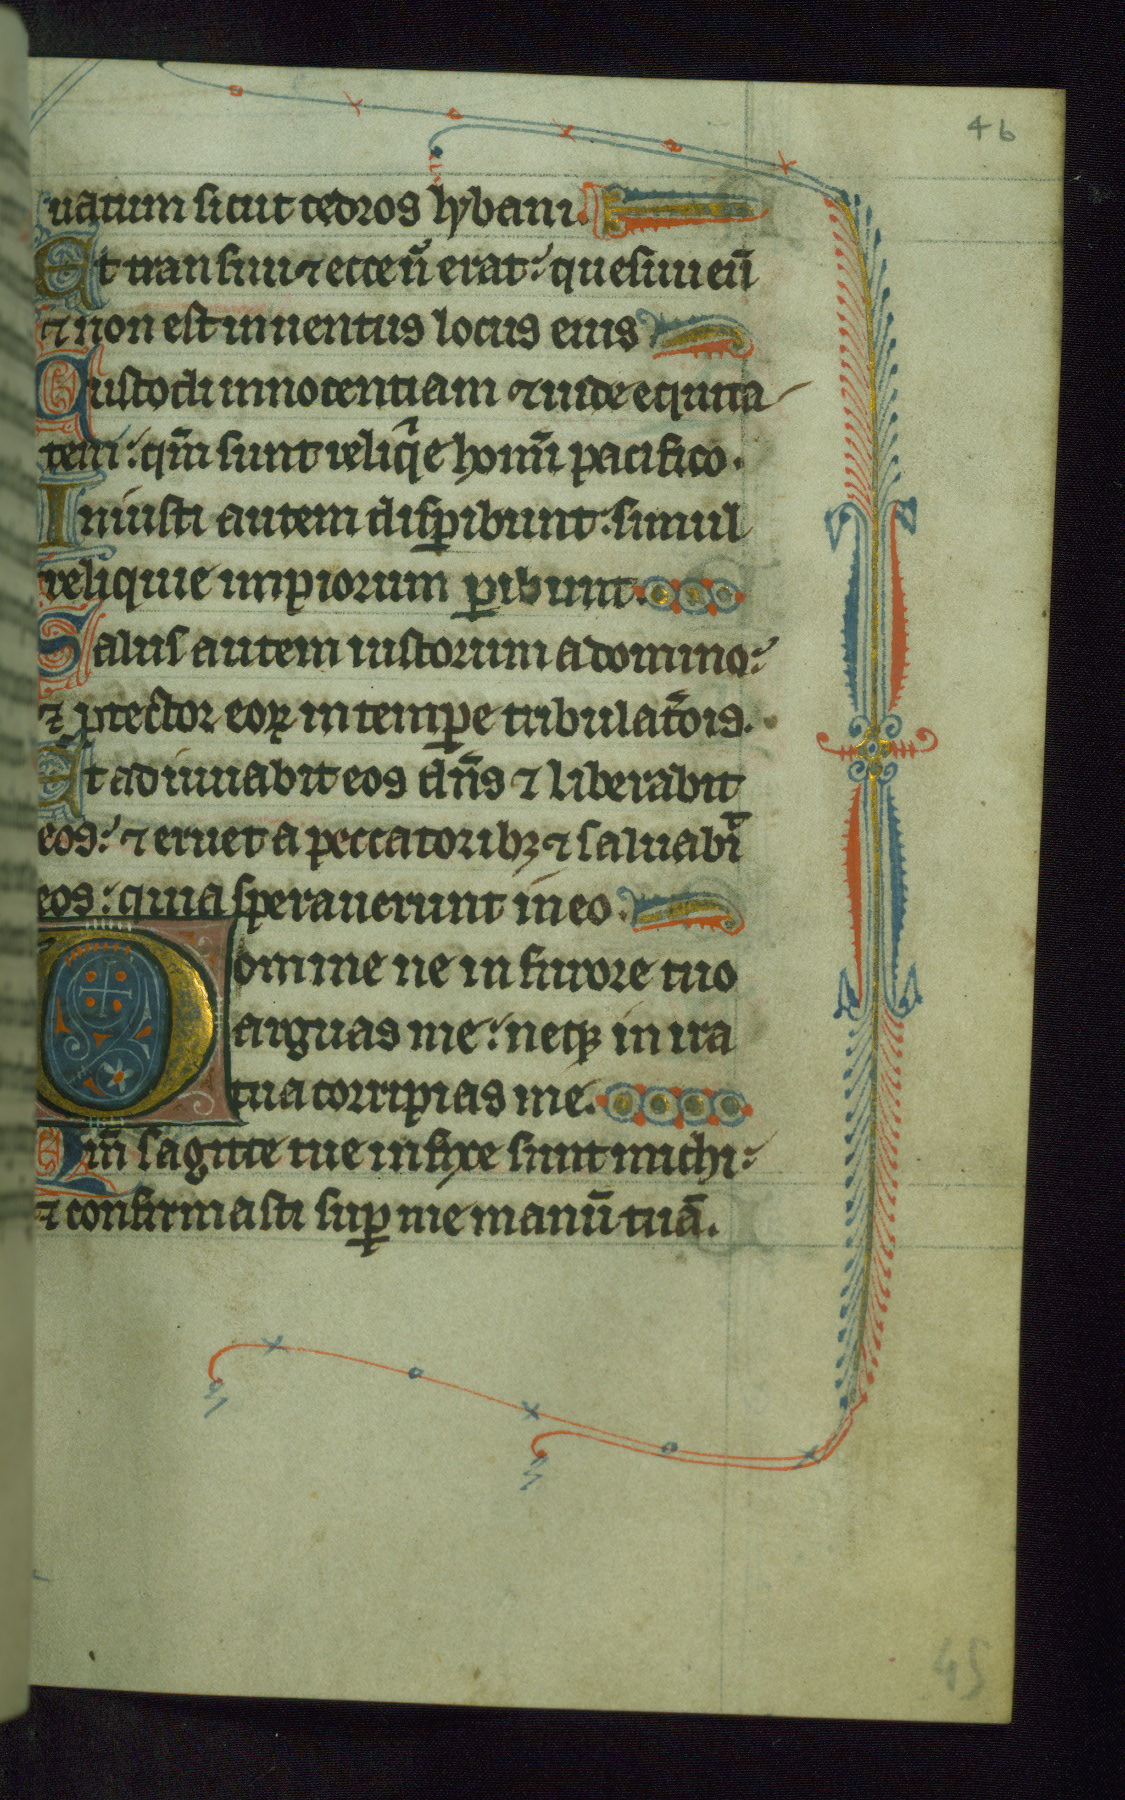 46
uatum sicut cedros lybani.
Et transiui ⁊ ecce nͦ erat: quesiui eū
⁊ non est inuentus locus eius
Custodi innocentiam ⁊ uide equita
tem: qm̄ sunt reliqͥe homīi pacifico.
Iniusti autem disꝑibunt: simul
reliquie impiorum ꝑibunt.
Salus autem iustorum a domino:
⁊ ꝓtector eoꝝ in temꝑe tribulat̄ois.
Et adiuuabit eos dn̄s ⁊ liberabit
eos: ⁊ eruet a peccatoribꝫ ⁊ saluabiᵗ
eos: quia sperauerunt in eo.
Domine ne in furore tuo
arguas me: neqꝫ in ira
tua corripias me.
Qm̄ sagitte tue infixe sunt michi:
⁊ confirmasti suꝑ me manū tuā.
45